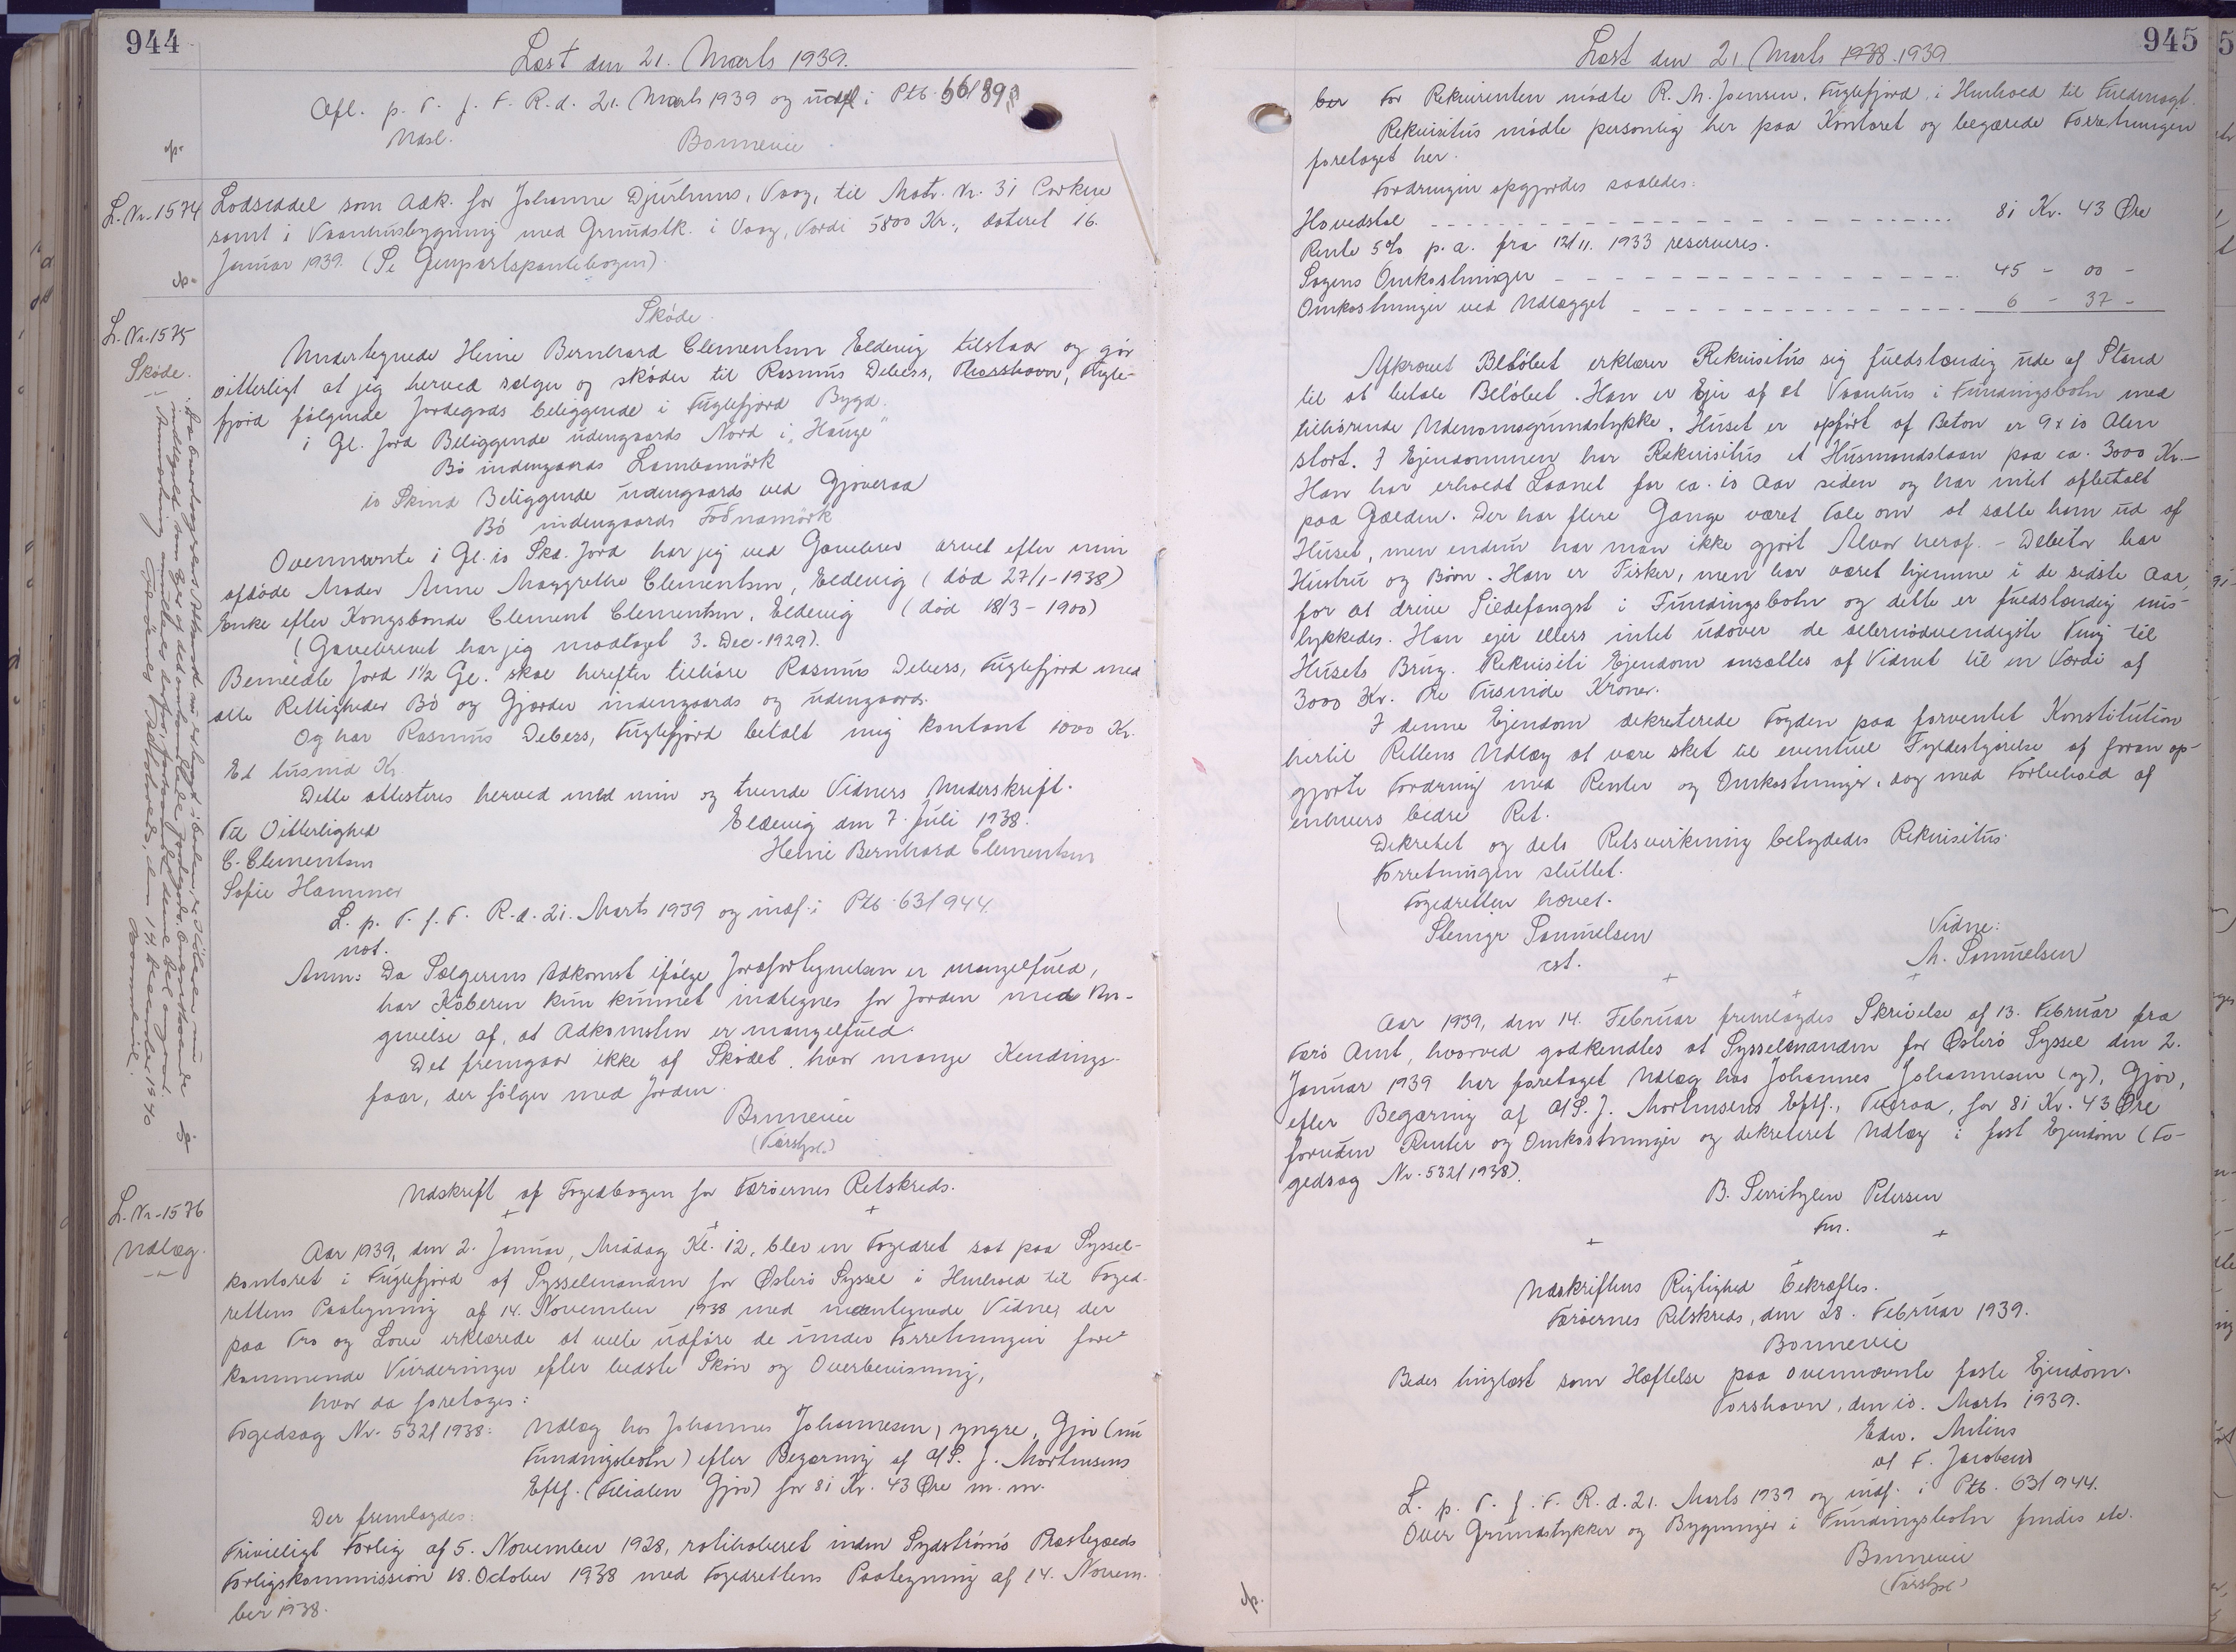 944
Læst den 21. Marts 1939.
Afl. p. T. f. F. R. d. 21. Marts 1939 og indf. i Ptb. 56/89
Masl.
Bonnevie
L. Nr. 1574 Lodseddel som Adk. for Johanne Djurhuus, Vaag, til Matr. Nr. 31
samt i Vaanhusbygning med Grundstk. i Vaag, Værdi 5800 Kr., dateret 16.
Januar 1939. (Se Genpartspantebogen)
L. Nr. 1575
Skøde.
Skøde.
Undertegnede Heine Bernhard Clementsen Eldevig tilstaar og gør
vitterligt at jeg herved sælger og skøder til Rasmus Debess, Thorshavn, Fugle-
fjord følgende Jordegods beliggende i Fuglefjord Bygd.
1 Gl. Jord Beliggende udengaards Nord i "Hauge"
Bø indengaards Lambamørk
10 Skind Beliggende udengaards ved Gjøveraa
Bø indengaards Toðnamørk
Ovennævnte 1 Gl. 10 Skd. Jord har jeg ved Gavebrev arvet efter min
afdøde Moder Anne Margrethe Clementsen, Eldevig (død 27/1-1938)
Enke efter Kongsbonde Clement Clementsen, Eldevig (død 18/3-1900)
(Gavebrevet har jeg modtaget 3. Dec-1929).
Bemeldte Jord 1½ Gl. skal herefter tilhøre Rasmus Debess, Fuglefjord med
alle Rettigheder Bø og Gjærder indengaards og udengaards.
Og har Rasmus Debess, Fuglefjord betalt mig kontant 1000 Kr.
Et tusind Kr.
Dette attesteres herved med min og tvende Vidners Underskrift.
Til Vitterlighed
Eldevig den 7. Juli 1938.
C. Clementsen
Heine Bernhard Clementsen
Sofie Hammer
L. p. T. f. F. R. d. 21. Marts 1939 og indf. i Ptb. 63/944.
not.
Anm: Da Sælgerens Adkomst ifølge Jordfortegnelsen er mangelfuld,
har Køberen kun kunnet indtegnes for Jorden med An-
givelse af, at Adkomsten er mangelfuld.
Det fremgaar ikke af Skødet, hvor mange Kendings-
faar, der følger med Jorden.
Bonnevie
L. Nr. 1576
Udlæg.
Udskrift af Fogedbogen for Færøernes Retskreds.
Aar 1939, den 2. Januar, Middag Kl. 12, blev en Fogedret sat paa Syssel-
kontoret i Fuglefjord af Sysselmanden for Østerø Syssel i Henhold til Foged-
rettens Paategning af 14. November 1938 med medundertegnede Vidne, der
paa Tro og Love erklærede at ville udføre de under Forretningen fore-
kommende Vurderinger efter bedste Skøn og Overbevisning,
hvor da foretoges:
Fogedsag Nr. 532/1938: Udlæg hos Johannes Johannesen, yngre, Gjov (nu
Fundingsbotn) efter Begæring af A/S. J. Mortensens
Eftf. (Filialen Gjov) for 81 Kr. 43 Øre m. m.
Der fremlagdes:
Frivilligt Forlig af 5. November 1928, ratihaberet inden Sydstrømø Præstegælds
Forligskommission 18. October 1938 med Fogedrettens Paategning af 14. Novem-
ber 1938.
945
Læst den 21. Marts 1938. 1939
ber For Rekvirenten mødte R. M. Joensen, Fuglefjord, i Henhold til Fuldmagt.
Rekvisitus mødte personlig her paa Kontoret og begærede Forretningen
foretaget her.
Fordringen opgjordes saaledes:
Hovedstol 81 Kr. 43 Øre
Rente 5% p. a. fra 12/11. 1933 reserveres.
Sagens Omkostninger 45 - 00 -
Omkostninger ved Udlægget 6 - 37 -
Afkrævet Beløbet erklærer Rekvisitus sig fuldstændig ude af Stand
til at betale Beløbet. Han er Ejer af et Vaanhus i Fundingsbotn med
tilhørende Udenomsgrundstykke. Huset er opført af Beton er 9 x 10 Alen
stort. I Ejendommen har Rekvisitus et Husmandslaan paa ca. 3000 Kr.
Han har erholdt Laanet for ca. 10 Aar siden og har intet afbetalt
paa Gælden. Der har flere Gange været Tale om at sætte ham ud af
Huset, men endnu har man ikke gjort Alvor heraf. - Debitor har
Hustru og Børn. Han er Fisker, men har været hjemme i de sidste Aar,
for at drive Sildefangst i Fundingsbotn og dette er fuldstændig mis-
lykkedes. Han ejer ellers intet udover de allernødvendigste Ting til
Husets Brug. Rekvisiti Ejendom ansættes af Vidnet til en Værdi af
3000 Kr. Tre Tusinde Kroner.
I denne Ejendom dekreterede Fogden paa forventet Konstitution
hertil Rettens Udlæg at være sket til eventuel Fyldestgørelse af foran op-
gjorte Fordring med Renter og Omkostninger, dog med Forbehold af
enhvers bedre Ret.
Dekretet og dets Retsvirkning betydedes Rekvisitus.
Forretningen sluttet.
Fogedretten hævet.
Slemgr Samuelsen
cst.
Vidne:
M. Samuelsen
Aar 1939, den 14. Februar fremlagdes Skrivelse af 13. Februar fra
Færø Amt, hvorved godkendtes at Sysselmanden for Østerø Syssel den 2.
Januar 1939 har foretaget Udlæg hos Johannes Johannesen (y), Gjov,
efter Begæring af A/S. J. Mortensens Eftf., Tveraa, for 81 Kr. 43 Øre
foruden Renter og Omkostninger og dekreteret Udlæg i fast Ejendom (Fo-
gedsag Nr. 532/1938).
B. Petersen
Fm.
Udskriftens Rigtighed bekræftes.
Færøernes Retskreds, den 28. Februar 1939.
Bonnevie
Bedes tinglæst som Hæftelse paa ovennævnte faste Ejendom.
Torshavn, den 10. Marts 1939.
Edw. Mitens
v/ F. Jacobsen
L. p. T. f. F. R. d. 21. Marts 1939 og indf. i Ptb. 63/944.
Over Grundstykker og Bygninger i Fundingsbotn findes etc.
Bonnevie